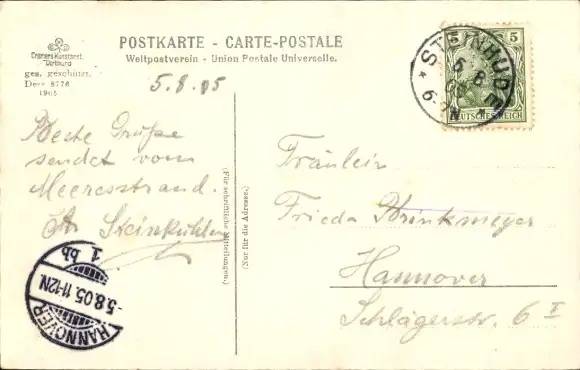 Cramers Kunstanst.
Dortmund
ges. geschützt.
Dess 8776
1905
POSTKARTE - CARTE-POSTALE
Weltpostverein - Union Postale Universelle.
5.8.05
Beste Grüße
sendet vom
Meeresstrand.
Steinkühler
(Für schriftliche Mitteilungen.)
(Nur für die Adresse.)
5 5
DEUTSCHES REICH
* STEINHUDE *
5 8
6-7N
Fräulein
Frieda Brinkmeyer
Hannover
Schlägerstr. 6 I
HANNOVER
-5.8.05.11-12N
1. bb